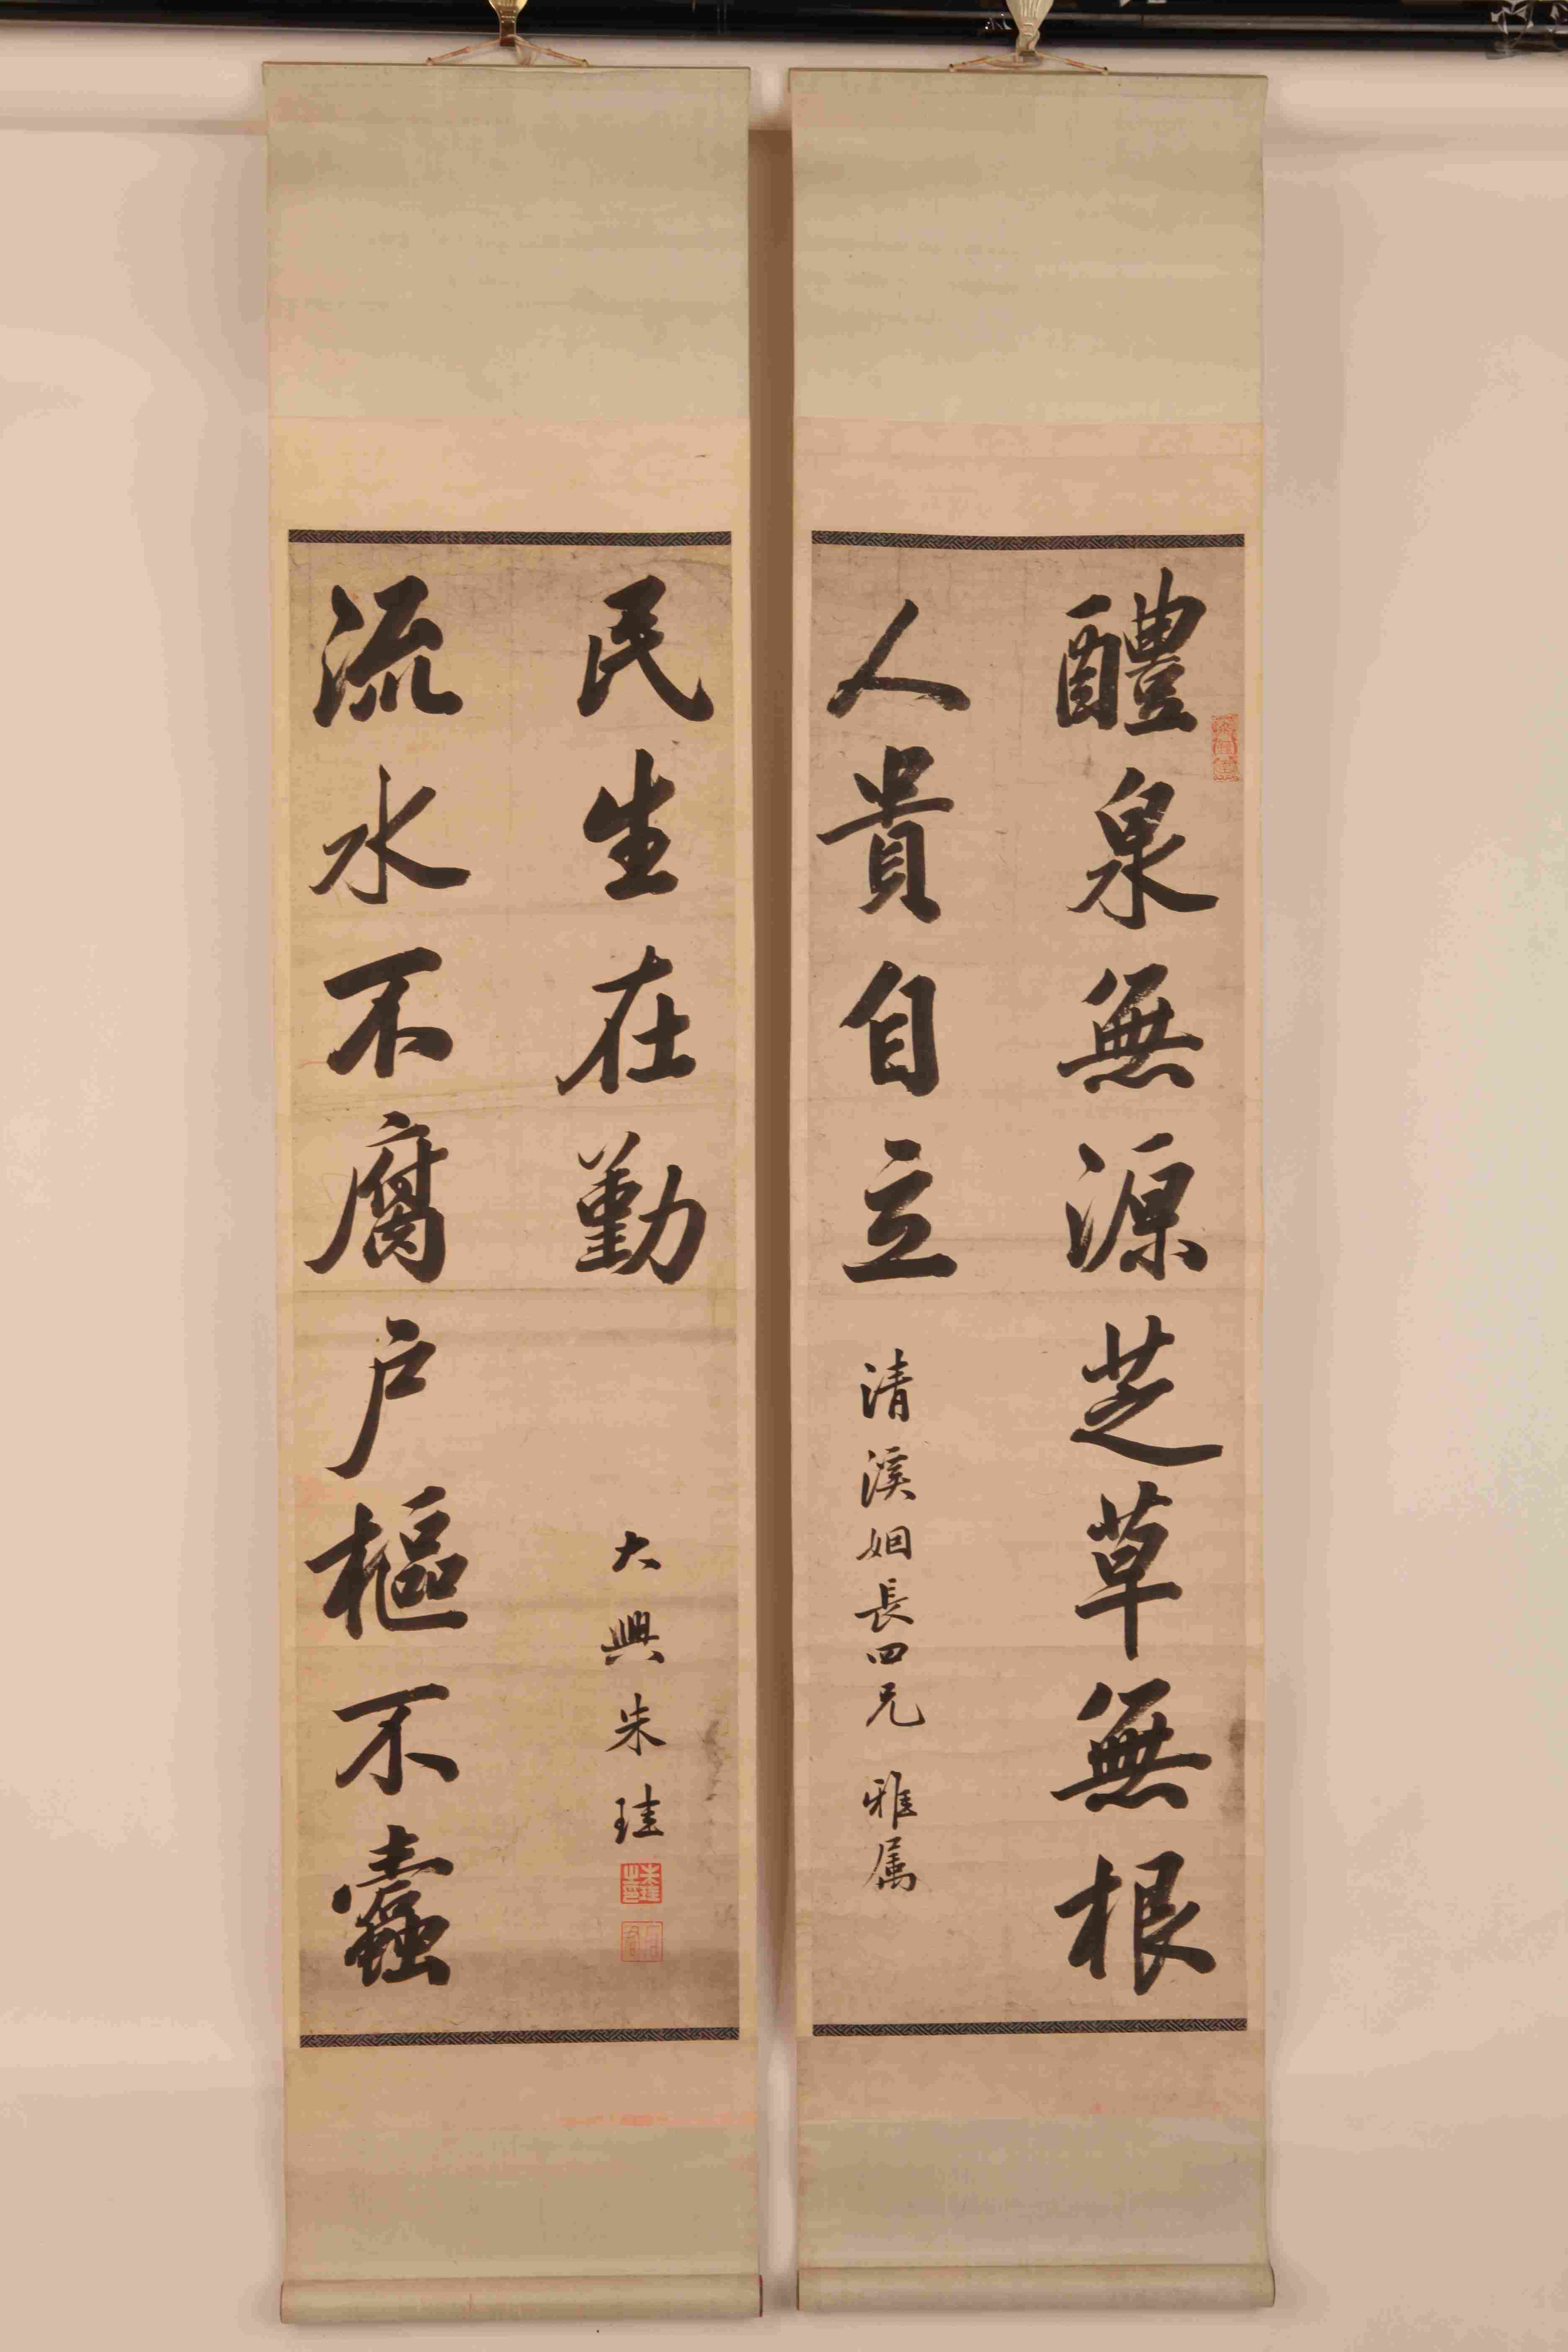 醴泉無源芝草無根
人貴自立
清溪姻長四兄 雅属
流水不腐户樞不蠹
民生在勤
大興朱珪
朱珪之印
石君